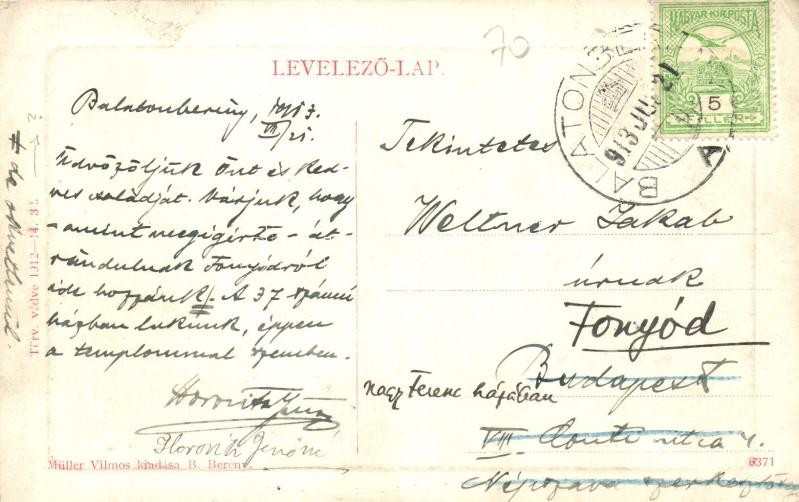 70
LEVELEZŐ-LAP.
MAGYAR KIR. POSTA
5
FILLÉR
BALATONBERÉNY
913 JUL 21
A
Balatonberény, 1913.
VII/21.
Üdvözöljük Önt és ked-
ves családját. Várjuk, hogy
- amint megigérte - át-
rándulnak Fonyódról
ide hozzánk. A 37 számú
házban lakunk, éppen
a templommal szemben.
Horovitz Jenő
Horovitz Jenőné
Tekintetes
Weltner Jakab
úrnak
Fonyód
Budapest
Nagy Ferenc házában
VIII. Conti utca 4.
Népszava szerkesztő
Törv. védve 1912-14. 31.
Müller Vilmos kiadása B. Berény.
6371